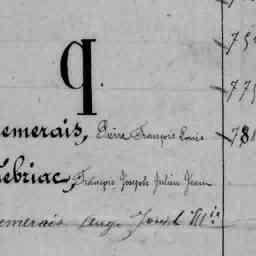 75
775
q
emerais, Pierre François Louis 781
ébriac, François Joseph Julien Jean
emerais Aug. Joseph Mie